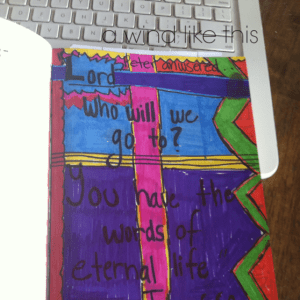 a wind like this
Peter answered
Lord
who will we
go to?
You have the
words of
eternal life